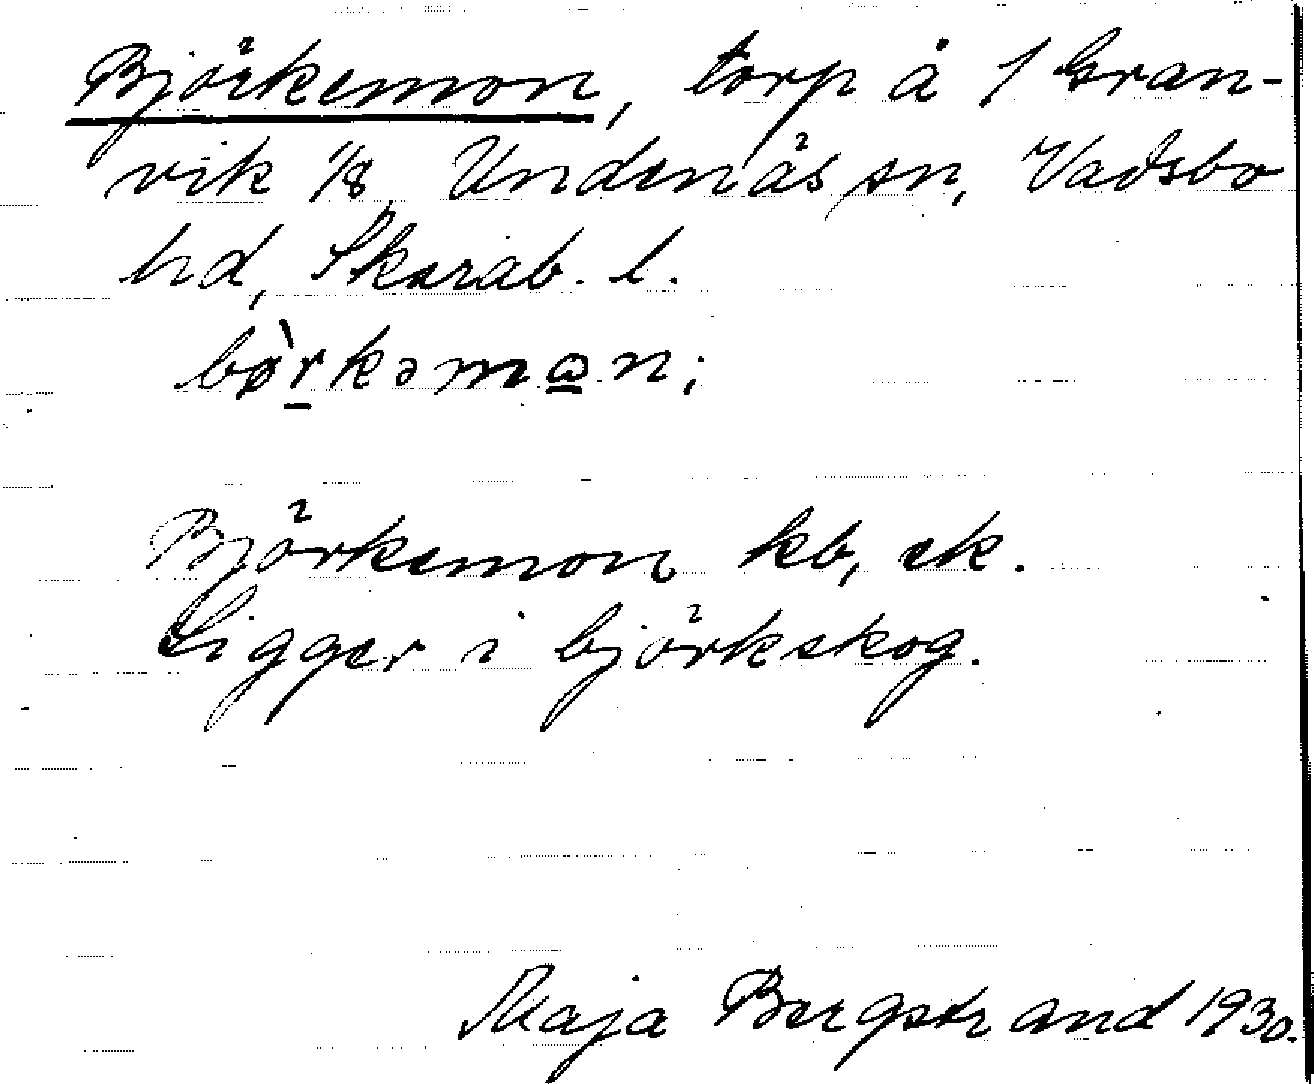 Björkemon, torp å 1 Gran-
vik 1/8 Undenäs sn, Vadsbo
hd, Skarab. l.
bø̀rkəmɷn;
Björkemon kb, ek.
Ligger i björkskog.
Maja Bergstrand 1930.